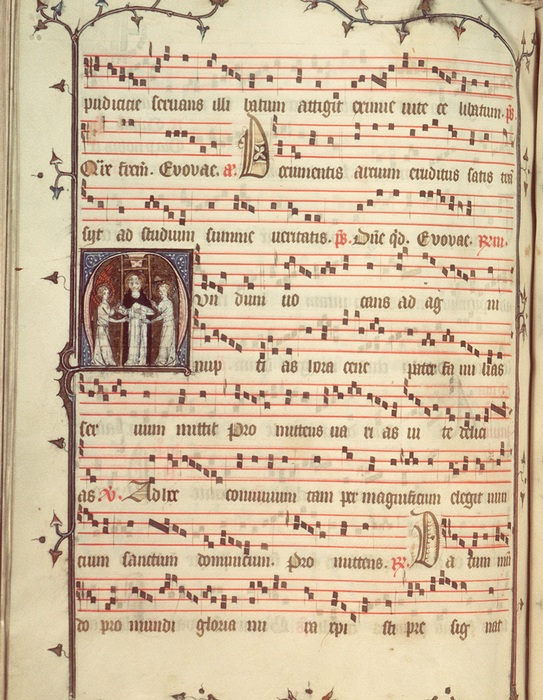 pudicicie seruans illi batum attigit eximie uite ce libatum. ps.
Qūr frem̄. Evovae. a. D ocumentis artium eruditus satis trā
syt ad studium summe ueritatis. ps. Dn̄e qd. Evovae.
M un dum uo cans ad ag ni
nup ti as lora cene pater fa mi lias
ser uum mittit Pro mittens ua ri as ui te delici
as V. Ad hoc conuiuium tam per magnificum elegit nun
cium sanctum dominicum. Pro mittens. R. D a tum mū
do pro mundi gloria mi ra xpi sti pre sig nat